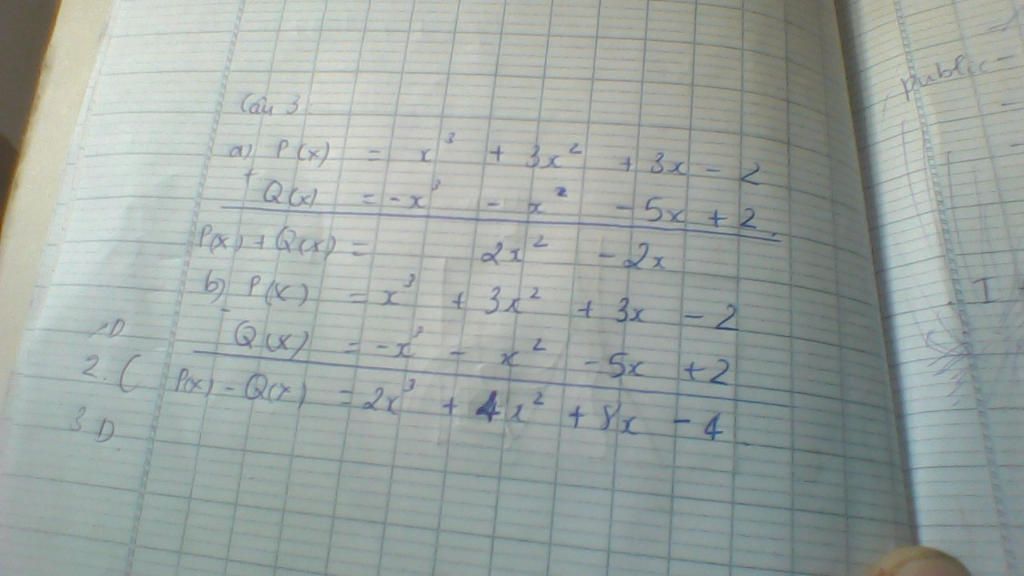 Câu 3
a) P(x) = x³ + 3x² + 3x - 2
+ Q(x) = -x³ - x² - 5x + 2
P(x) + Q(x) = 2x² - 2x
b) P(x) = x³ + 3x² + 3x - 2
- Q(x) = -x³ - x² - 5x + 2
P(x) - Q(x) = 2x³ + 4x² + 8x - 4
D
2. C
3 D
public
I